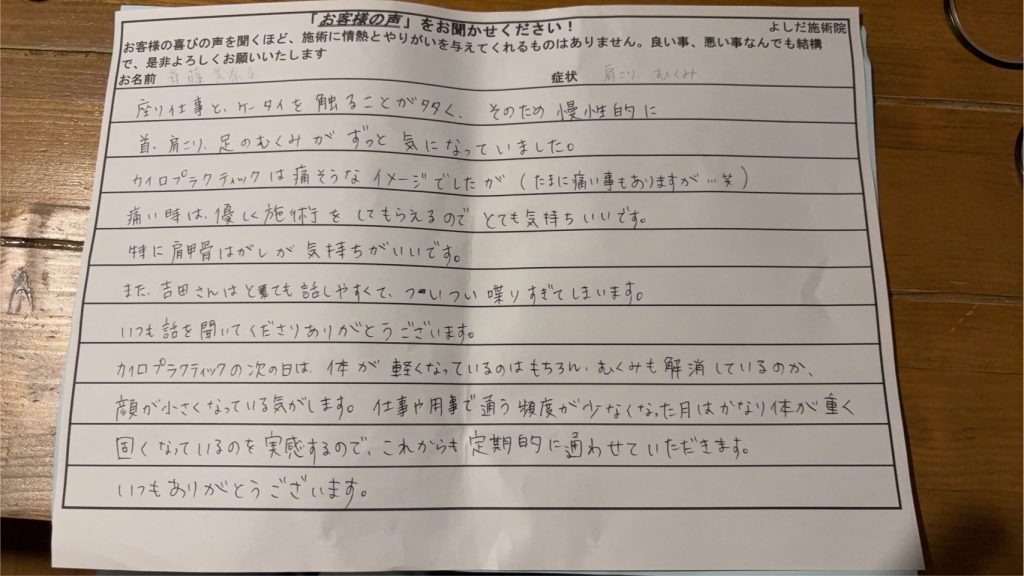 「お客様の声」をお聞かせください！
よしだ施術院
お客様の喜びの声を聞くほど、施術に情熱とやりがいを与えてくれるものはありません。良い事、悪い事なんでも結構
で、是非よろしくお願いいたします
お名前
症状 肩こり、むくみ
座り仕事と、ケータイを触ることが多く、そのため慢性的に
首、肩こり、足のむくみがずっと気になっていました。
カイロプラクティックは痛そうなイメージでしたが（たまに痛い事もありますが…笑）
痛い時は、優しく施術をしてもらえるのでとても気持ちいいです。
特に肩甲骨はがしが気持ちがいいです。
また、吉田さんはとても話しやすくて、ついつい喋りすぎてしまいます。
いつも話を聞いてくださりありがとうございます。
カイロプラクティックの次の日は、体が軽くなっているのはもちろん、むくみも解消しているのか、
顔が小さくなっている気がします。仕事や用事で通う頻度が少なくなった月はかなり体が重く
固くなっているのを実感するので、これからも定期的に通わせていただきます。
いつもありがとうございます。